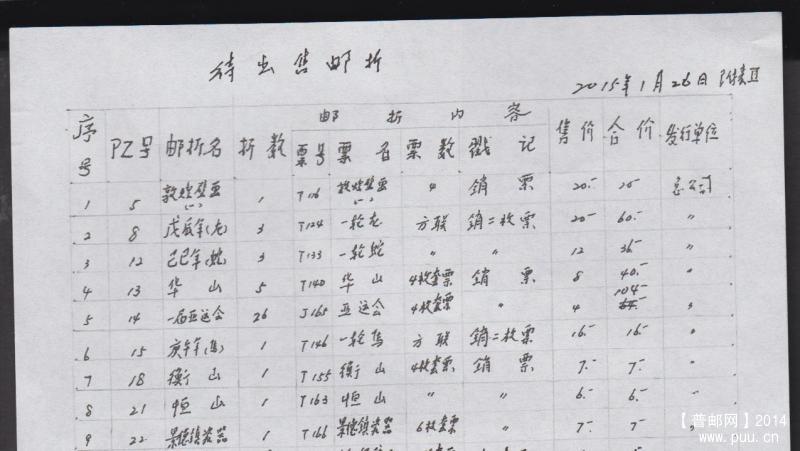 待出售邮折
2015年1月26日 附表Ⅱ
序号 PZ号 邮折名 折数 邮折内容 售价 合价 发行单位
票号 票名 票数 戳记
1 5 敦煌壁画(一) 1 T116 敦煌壁画(一) 4 銷票 20.- 20.- 总公司
2 8 戊辰年(龙) 3 T124 一轮龙 方联 銷二枚票 20.- 60.- 〃
3 12 己巳年(蛇) 3 T133 一轮蛇 〃 〃 12 36.- 〃
4 13 华山 5 T140 华山 4枚套票 銷票 8 40.- 〃
5 14 一届亚运会 26 J165 亚运会 4枚套票 〃 4 104.- 〃
6 15 庚午年(马) 1 T146 一轮马 方联 銷二枚票 16.- 16.- 〃
7 18 衡山 1 T155 衡山 4枚套票 銷票 7.- 7.- 〃
8 21 恒山 1 T163 恒山 〃 〃 6.- 6.- 〃
9 22 景德镇瓷器 1 T166 景德镇瓷器 6枚套票 〃 7- 7- 〃
【普邮网】2014
www.puu.cn